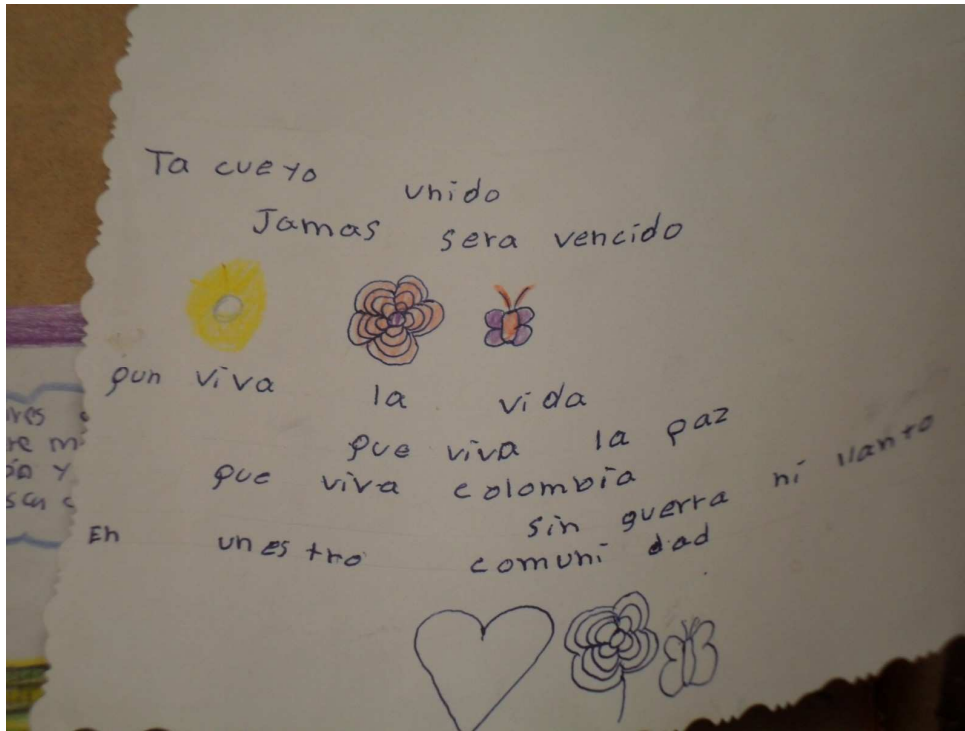 Ta cueyo unido
Jamas sera vencido
qun viva la vida
que viva la paz
que viva colombia
sin guerra ni llanto
En unestro comuni dad